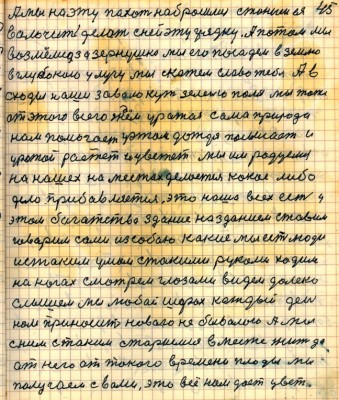 А мы на эту пахот набросим станим ея 45
валочить делат с ней эту уядку. А потом мы
возмём да зернушко мы его посадем в землю
в глубокою улугу мы скажем слово тебя. А в
сюды наши заволокут зеленю поля мы тожи
от этого всего ждём уражая сама природа
нам помогает утром дождя посылает и
уражай растет и цветет мы им радуемся
на наших на местах делается какое либо
дело прибавляется, это наша всех ест у
этом багатство здание на зданием ставим
говарим сами из собою какие мы ест люди
из таким умом с такими руками ходим
на ногах смотрем глозами видем далеко
слышем мы любой шорах каждый ден
нам приносит новаго не бывалаго А мы
с ним с таким старимся в месте жит да
от него от такого времени плоды мы
палучаем с вами, это всё нам дает цвет.